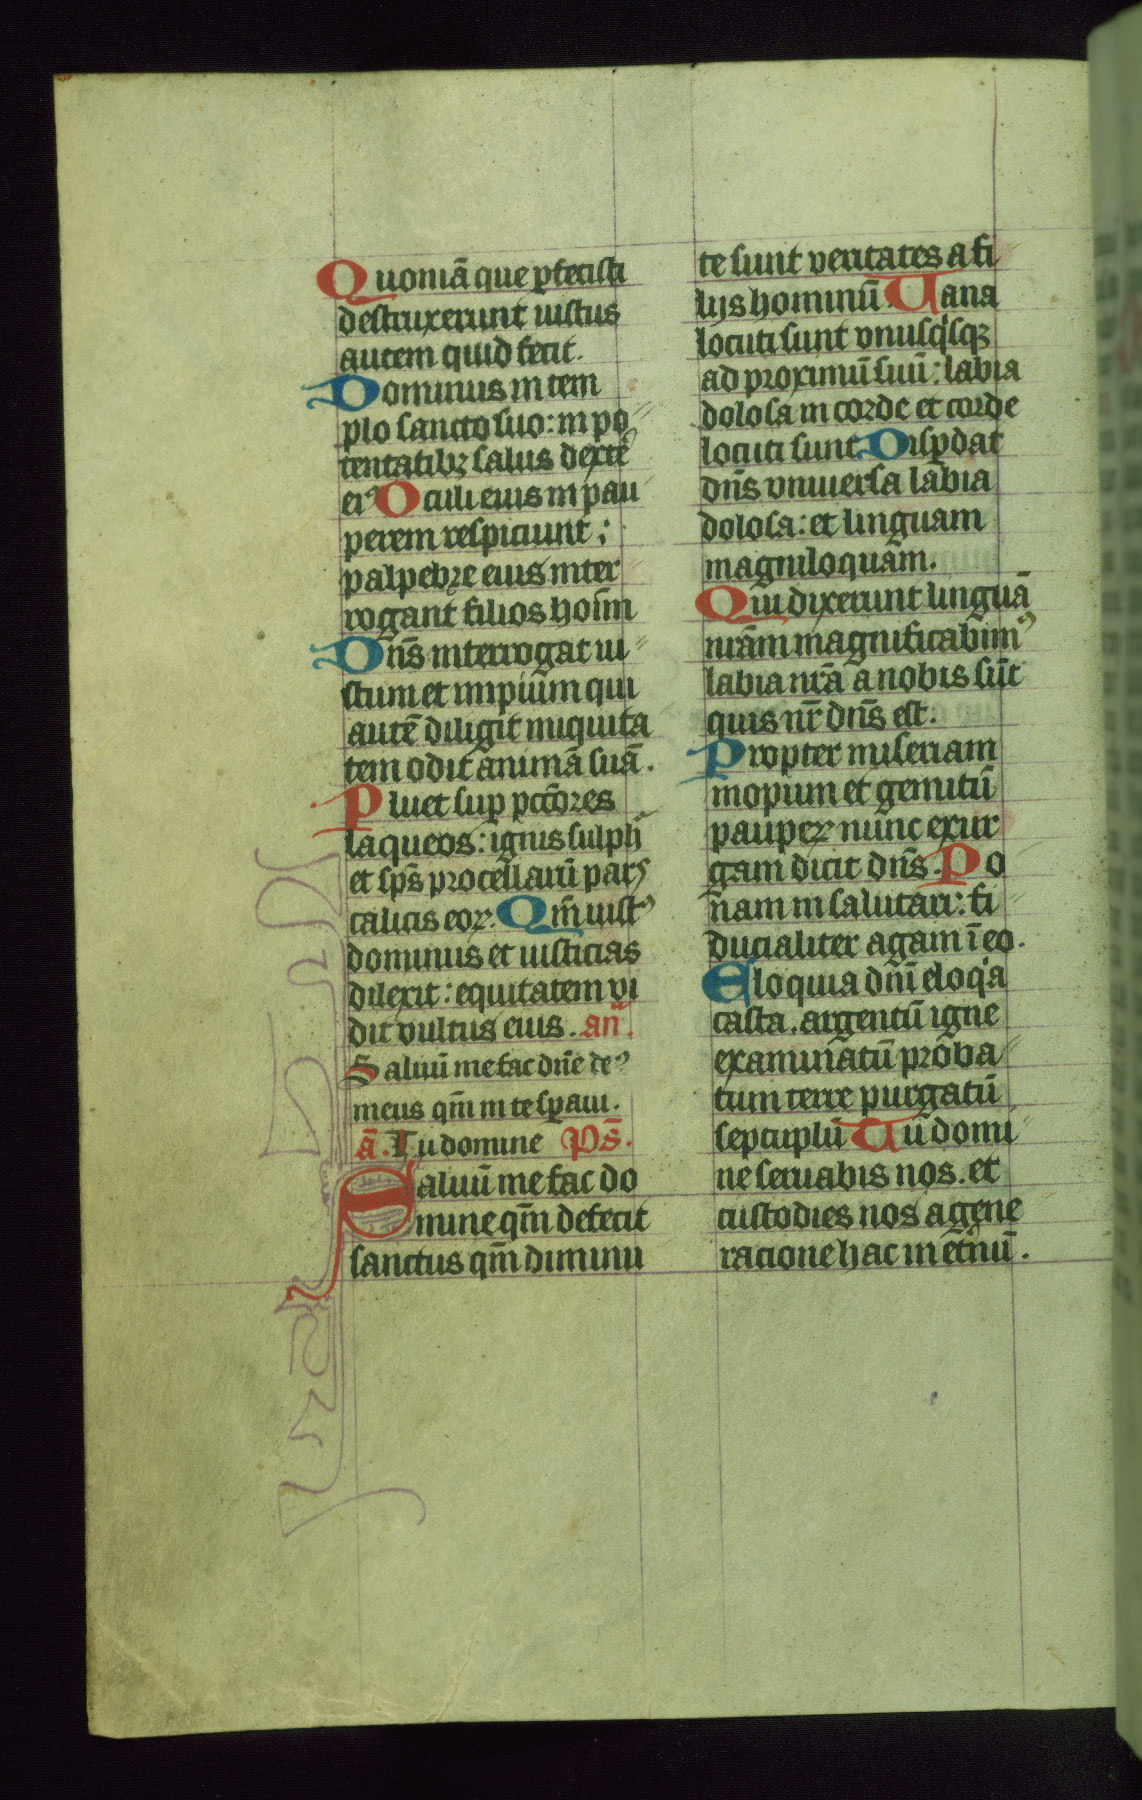 Quoniā que ꝑfecisti
destruxerunt iustus
autem quid fecit.
Dominus in tem
plo sancto suo: in po
tentatibꝫ salus dexte
eiꝰ Oculi eius in pau
perem respiciunt;
palpebre eius inter
rogant filios hoīm
Dn̄s interrogat iu
stum et impium qui
autē diligit iniquita
tem odit animā suā.
Pluet suꝑ pcc̄ores
laqueos: ignis sulph̄
et sp̄s procellarū pars
calicis eoꝝ. Qm̄ iustꝰ
dominus et iusticias
dilexit: equitatem vi
dit vultus eius. an̄.
Saluū me fac dn̄e deꝰ
meus qm̄ in te sꝑaui.
ā. Tu domine Ps̄.
Saluū me fac do
mine qm̄ defecit
sanctus qm̄ diminu
te sunt veritates a fi
lijs hominū. Uana
locuti sunt vnusqͥsqꝫ
ad proximū suū: labia
dolosa in corde et corde
locuti sunt Disꝑdat
dn̄s vniuersa labia
dolosa: et linguam
magniloquam.
Qui dixerunt linguā
nrām magnificabimꝰ
labia nrā a nobis sūt
quis nr̄ dn̄s est.
Propter miseriam
inopum et gemitū
pauperꝝ nunc exur
gam dicit dn̄s. Po
nam in salutari: fi
ducialiter agam ī eo.
Eloquia dn̄i eloqͥa
casta, argentū igne
examinatū proba
tum terre purgatū
septuplū Tu domi
ne seruabis nos. et
custodies nos a gene
racione hac in et̄nū.